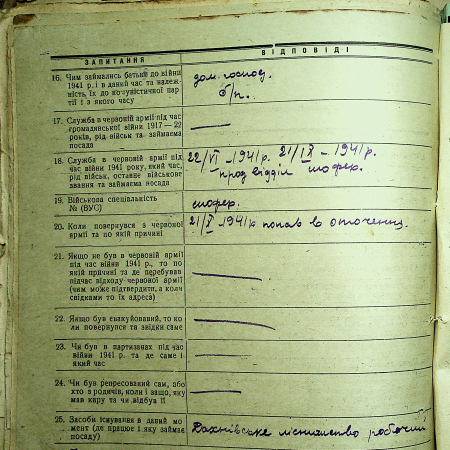 ЗАПИТАННЯ
ВІДПОВІДІ
16. Чим займались батьки до війни
1941 р. і в даний час та належ-
ність, їх до комуністичної пар-
тії і з якого часу
дом. господ.
б/п.
17. Служба в червоній армії під час
громадянської війни 1917—22
років, рід військ та займаєма
посада
18. Служба в червоній армії під
час війни 1941 року, який час,
рід військ, останнє військове
звання та займаєма посада
22/VI –1941 р. 21/IX – 1941 р.
прод відділ шофер.
19. Військова спеціальність
№ (ВУС)
шофер.
20. Коли повернувся з червоної
армії та по якій причині
1941 р попав в оточення.
21. Якщо не був в червоній армії
під час війни 1941 р., то по
якій причині та де перебував
підчас відходу червоної армії
(чим може підтвердити, а коли
свідками то їх адреса)
22. Якщо був евакуйований, то ко-
ли повернувся та звідки саме
23. Чи був в партизанах під час
війни 1941 р. та де саме і
який час
24. Чи був репресований сам, або
хто з родичів, коли і за що, яку
мав кару та чи відбув її
25. Засоби існування в даний мо-
мент (де працює і яку займає
посаду)
Дахнівське лісництво робочий